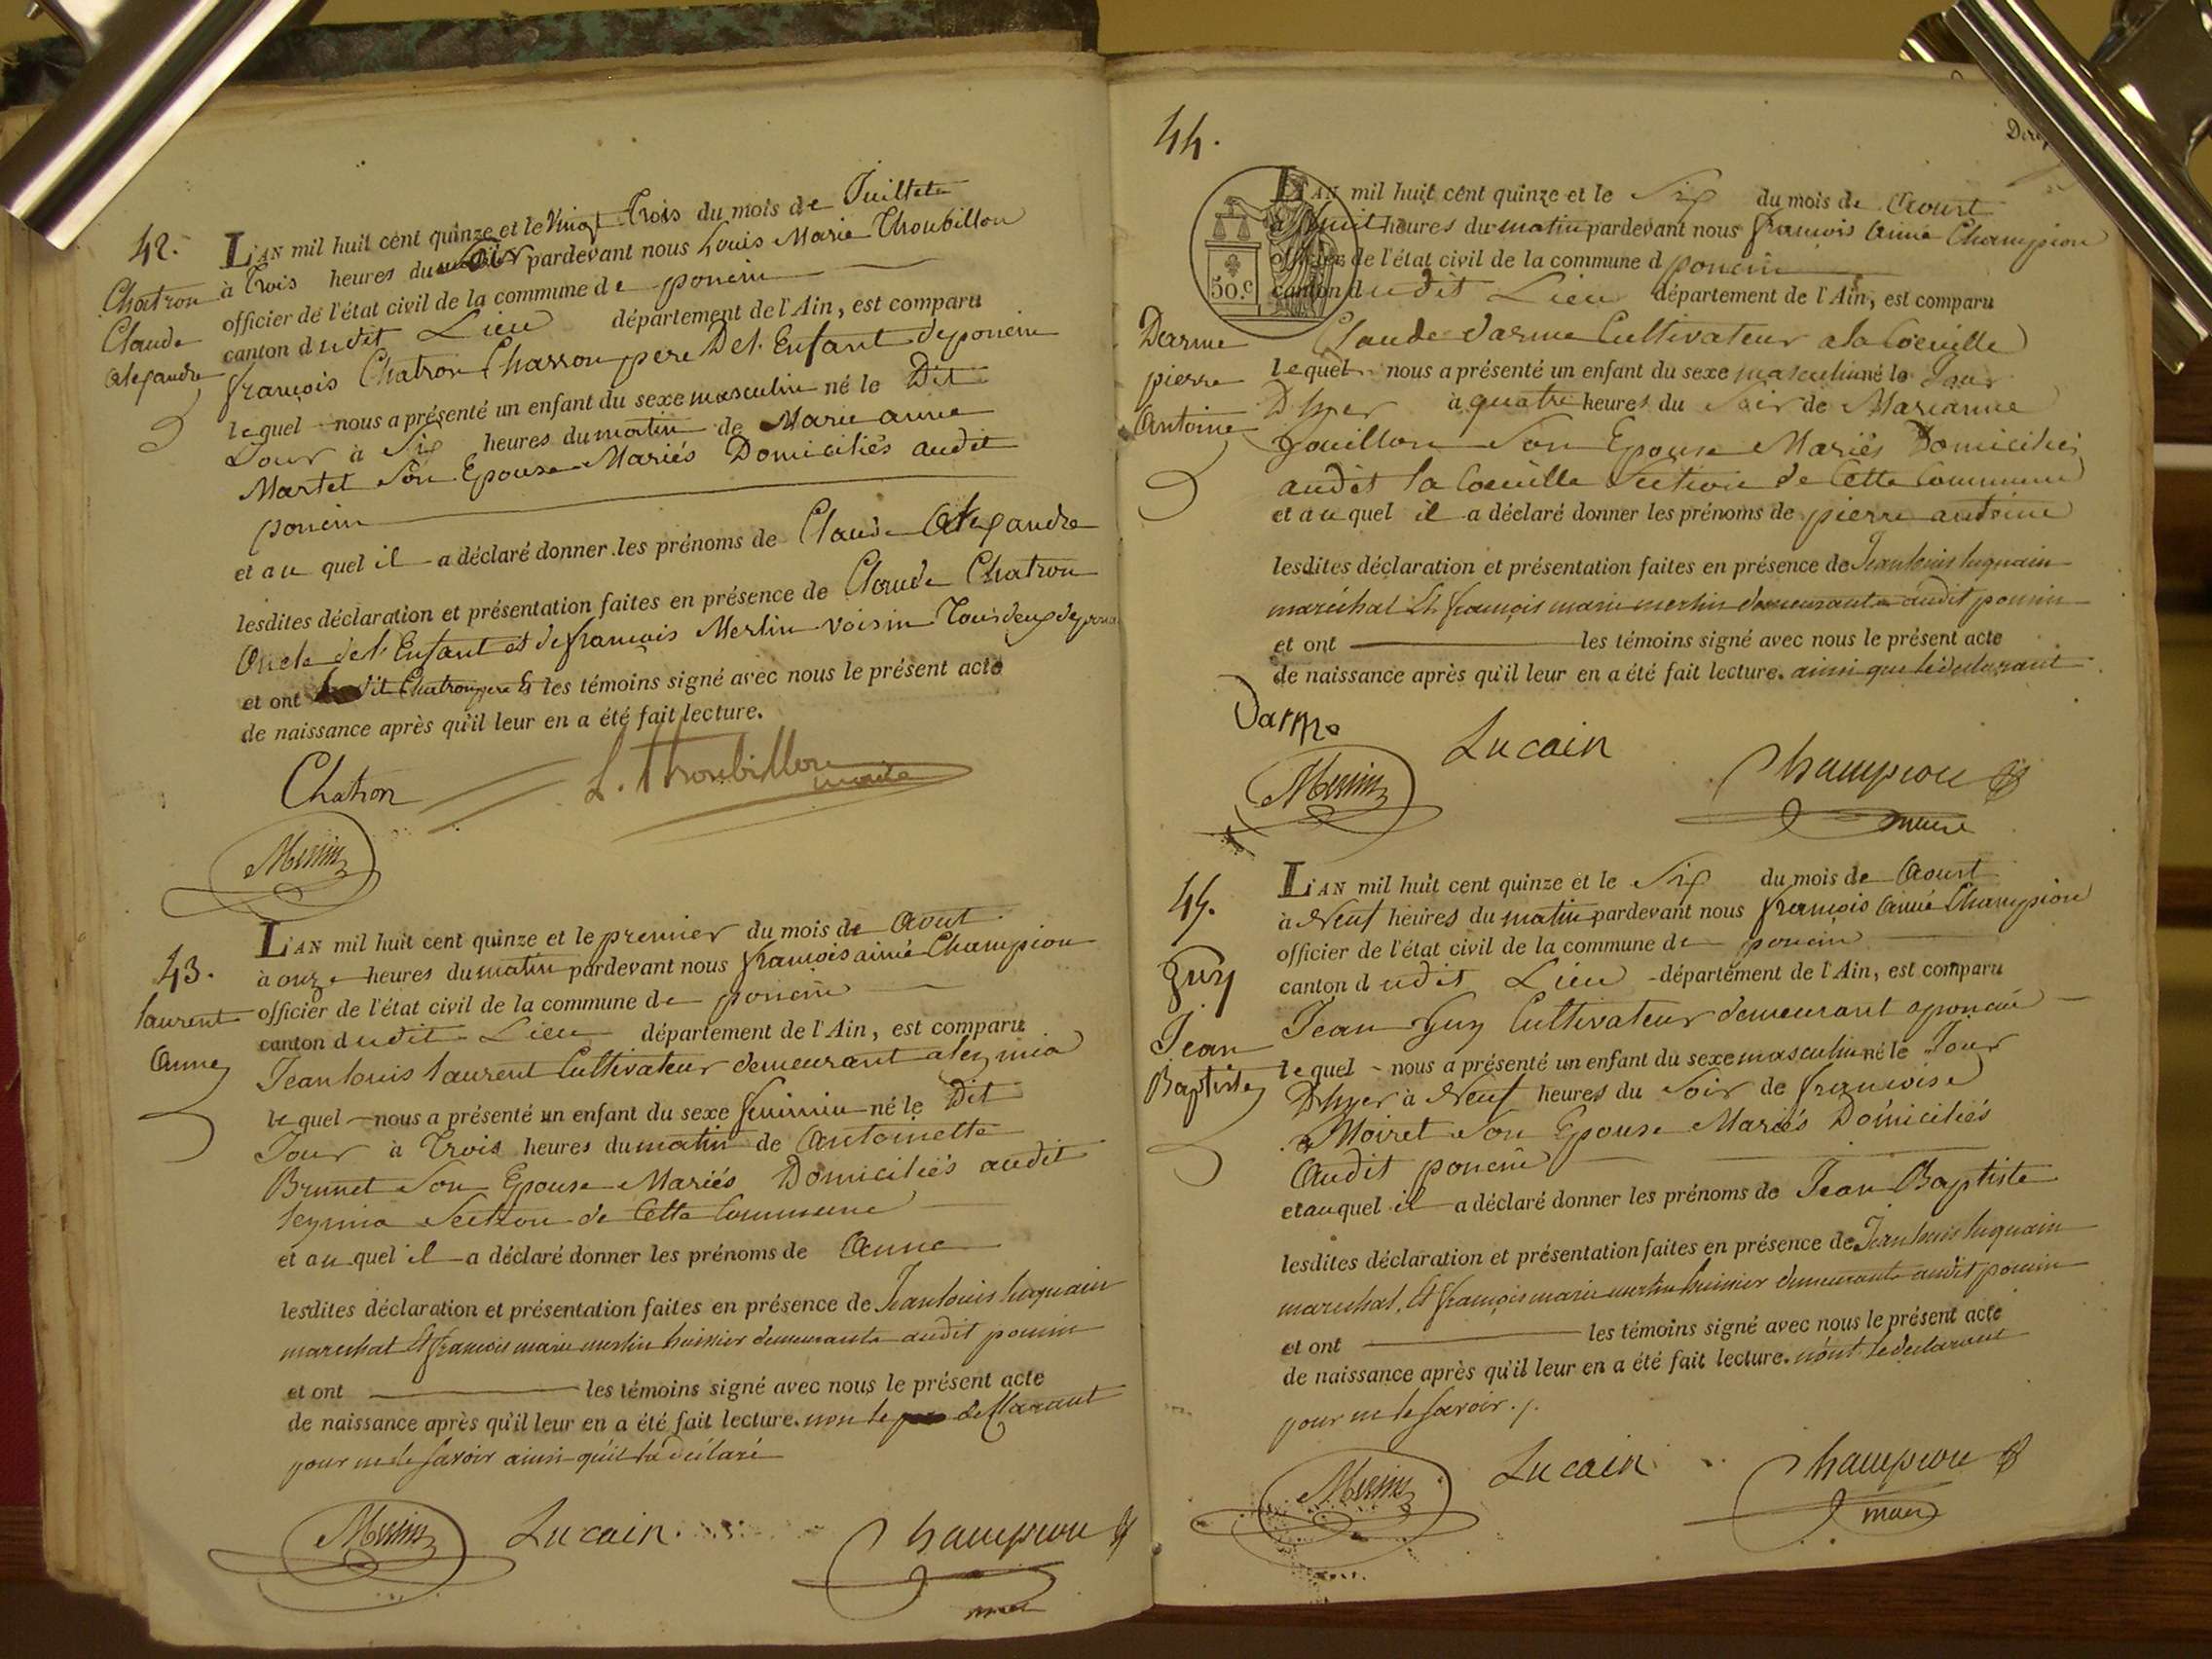 42.
Chatron
Claude
Alexandre
L'AN mil huit cent quinze et le Vingt Trois du mois de Juillet
à Trois heures du soir pardevant nous Louis Marie Thoubillon
officier de l'état civil de la commune de poncin
canton dudit Lieu département de l'Ain, est comparu
françois Chatron Charron pere De l'Enfant de poncin
lequel nous a présenté un enfant du sexe masculin né le Dit
Jour à Six heures du matin de Marie anne
Martet Son Epouse Mariés Domiciliés audit
poncin
et au quel il a déclaré donner les prénoms de Claude Alexandre
lesdites déclaration et présentation faites en présence de Claude Chatron
Oncle de l'Enfant et de françois Merlin voisin Tous deux de
et ont dit Chatron pere et les témoins signé avec nous le présent acte
de naissance après qu'il leur en a été fait lecture.
Chatron L. Thoubillon
maire
Merlin
43.
Laurent
Anne
L'AN mil huit cent quinze et le premier du mois de Aout
à onze heures du matin pardevant nous françois aimé Champion
officier de l'état civil de la commune de poncin
canton dudit Lieu département de l'Ain, est comparu
Jean louis Laurent Cultivateur demeurant a leymia
lequel nous a présenté un enfant du sexe feminin né le Dit
Jour à Trois heures du matin de Antoinette
Brunet Son Epouse Mariés Domiciliés audit
leymia Section de Cette Commune
et au quel il a déclaré donner les prénoms de Anne
lesdites déclaration et présentation faites en présence de Jean louis luquain
marechal Et françois marie merlin huissier demeurants audit poncin
et ont les témoins signé avec nous le présent acte
de naissance après qu'il leur en a été fait lecture. non le declarant
pour ne le savoir ainsi qu'il l'a déclaré
Merlin Lucain Champion
maire
44.
Darme
pierre
Antoine
50.c
L'AN mil huit cent quinze et le Six du mois de Aoust
a huit heures du matin pardevant nous françois Aimé Champion
officier de l'état civil de la commune d poncin
canton dudit Lieu département de l'Ain, est comparu
Claude Darme Cultivateur a la Coeuille
lequel nous a présenté un enfant du sexe masculin né le Jour
D'hyer à quatre heures du Soir de Marianne
Gouillon Son Epouse Mariés Domiciliés
audit la Coeuille Section de Cette Commune
et au quel il a déclaré donner les prénoms de pierre antoine
lesdites déclaration et présentation faites en présence de Jean louis luquain
maréchal Et françois marie merlin demeurants audit poncin
et ont les témoins signé avec nous le présent acte
de naissance après qu'il leur en a été fait lecture. ainsi que le déclarant
Darme
Merlin Lucain Champion
maire
45.
Guy
Jean
Baptiste
L'AN mil huit cent quinze et le Six du mois de Aoust
à Neuf heures du matin pardevant nous françois Aimé Champion
officier de l'état civil de la commune de poncin
canton dudit Lieu département de l'Ain, est comparu
Jean Guy Cultivateur demeurant a poncin
lequel nous a présenté un enfant du sexe masculin né le Jour
D'hyer à Neuf heures du Soir de francoise
Moiret Son Epouse Mariés Domiciliés
Audit poncin
et au quel il a déclaré donner les prénoms de Jean Baptiste
lesdites déclaration et présentation faites en présence de Jean louis luquain
marechal, Et françois marie merlin huissier demeurants audit poncin
et ont les témoins signé avec nous le présent acte
de naissance après qu'il leur en a été fait lecture. non le declarant
pour ne le savoir ./.
Merlin Lucain Champion
maire